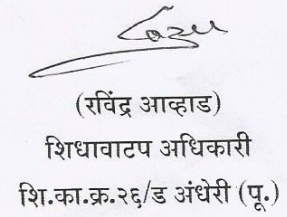 (रविंद्र आव्हाड)
शिधावाटप अधिकारी
शि.का.क्र.२६/ड अंधेरी (पू.)